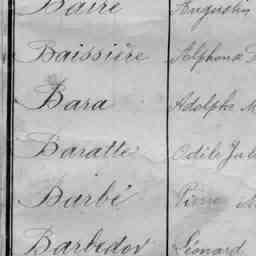 Barre Augustin
Baissière Alphonse
Bara Adolphe M
Baratte Odile Jul
Barbé Pierre M
Barbedor Léonard